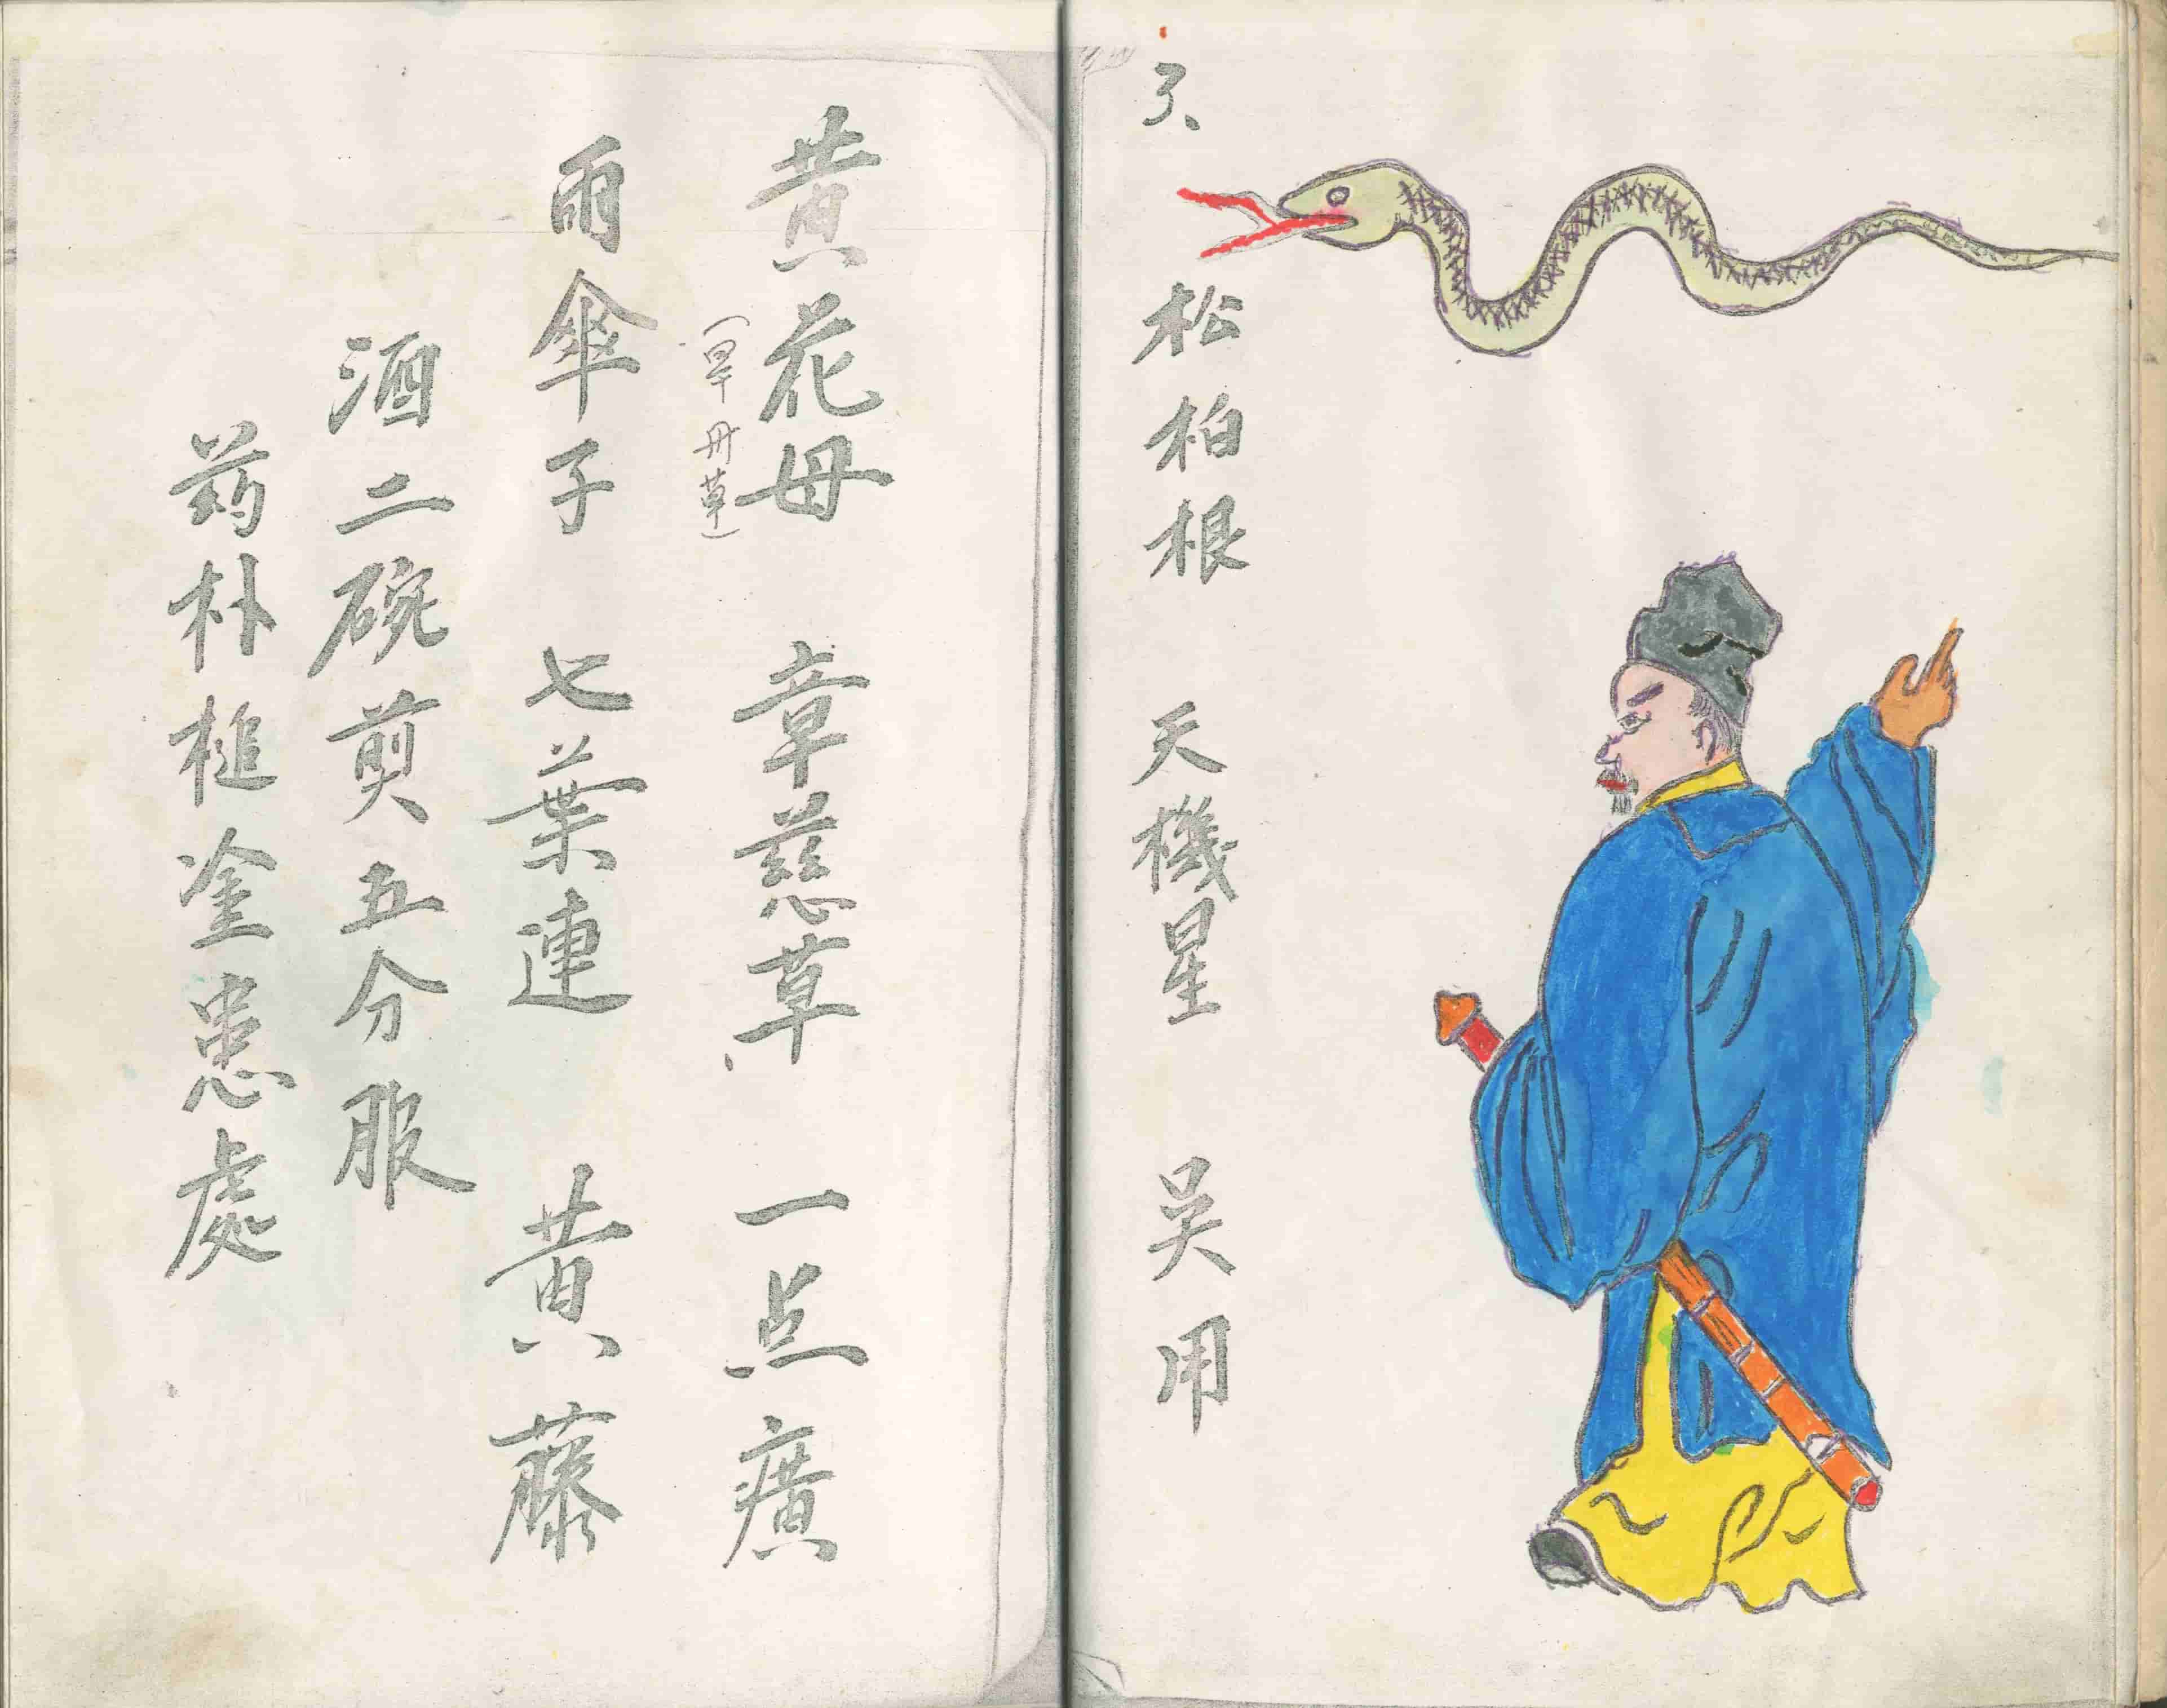 3、
松柏根 天機星 吳用
黄花母 章慈草、 一点癀
雨傘子 七葉連 黄藤
酒二碗煎五分服
药朴槌塗患處